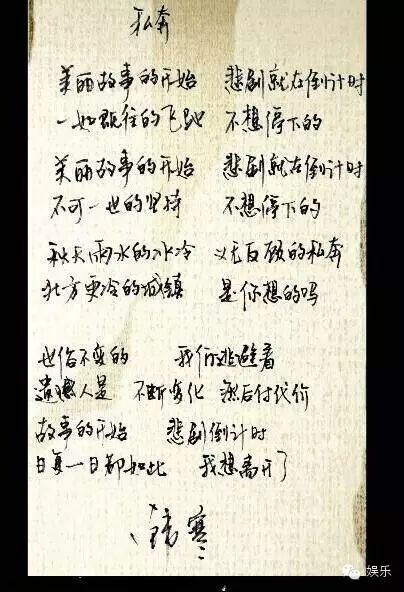 私奔
美丽故事的开始 悲剧就在倒计时
一如既往的飞驰 不想停下的
美丽故事的开始 悲剧就在倒计时
不可一世的坚持 不想停下的
秋天雨水的冰冷 义无反顾的私奔
北方更冷的城镇 是你想的吗
世俗不变的 我们逃避着
遗憾人是 不断劣化 然后付代价
故事的开始 悲剧倒计时
日复一日都如此 我想离开了
韩寒
娱乐